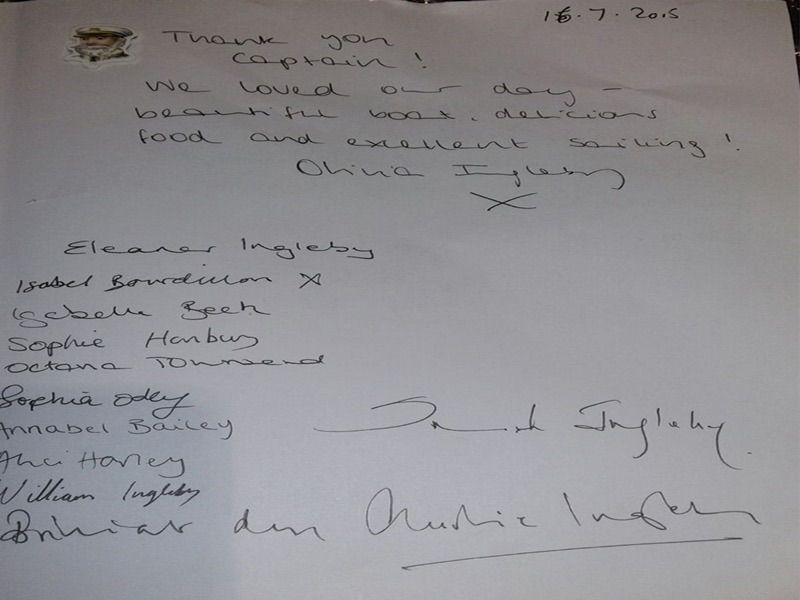 16.7.2015
Thank you
Captain!
We loved our day -
beautiful boat, delicious
food and excellent sailing!
Olivia Ingleby
X
Eleanor Ingleby
Isabel Bourdillon X
Isabella Beck
Sophie Hanbury
Octavia Townsend
Sophia Odey
Annabel Bailey
Ingleby.
Harley
William Ingleby
Ingleby